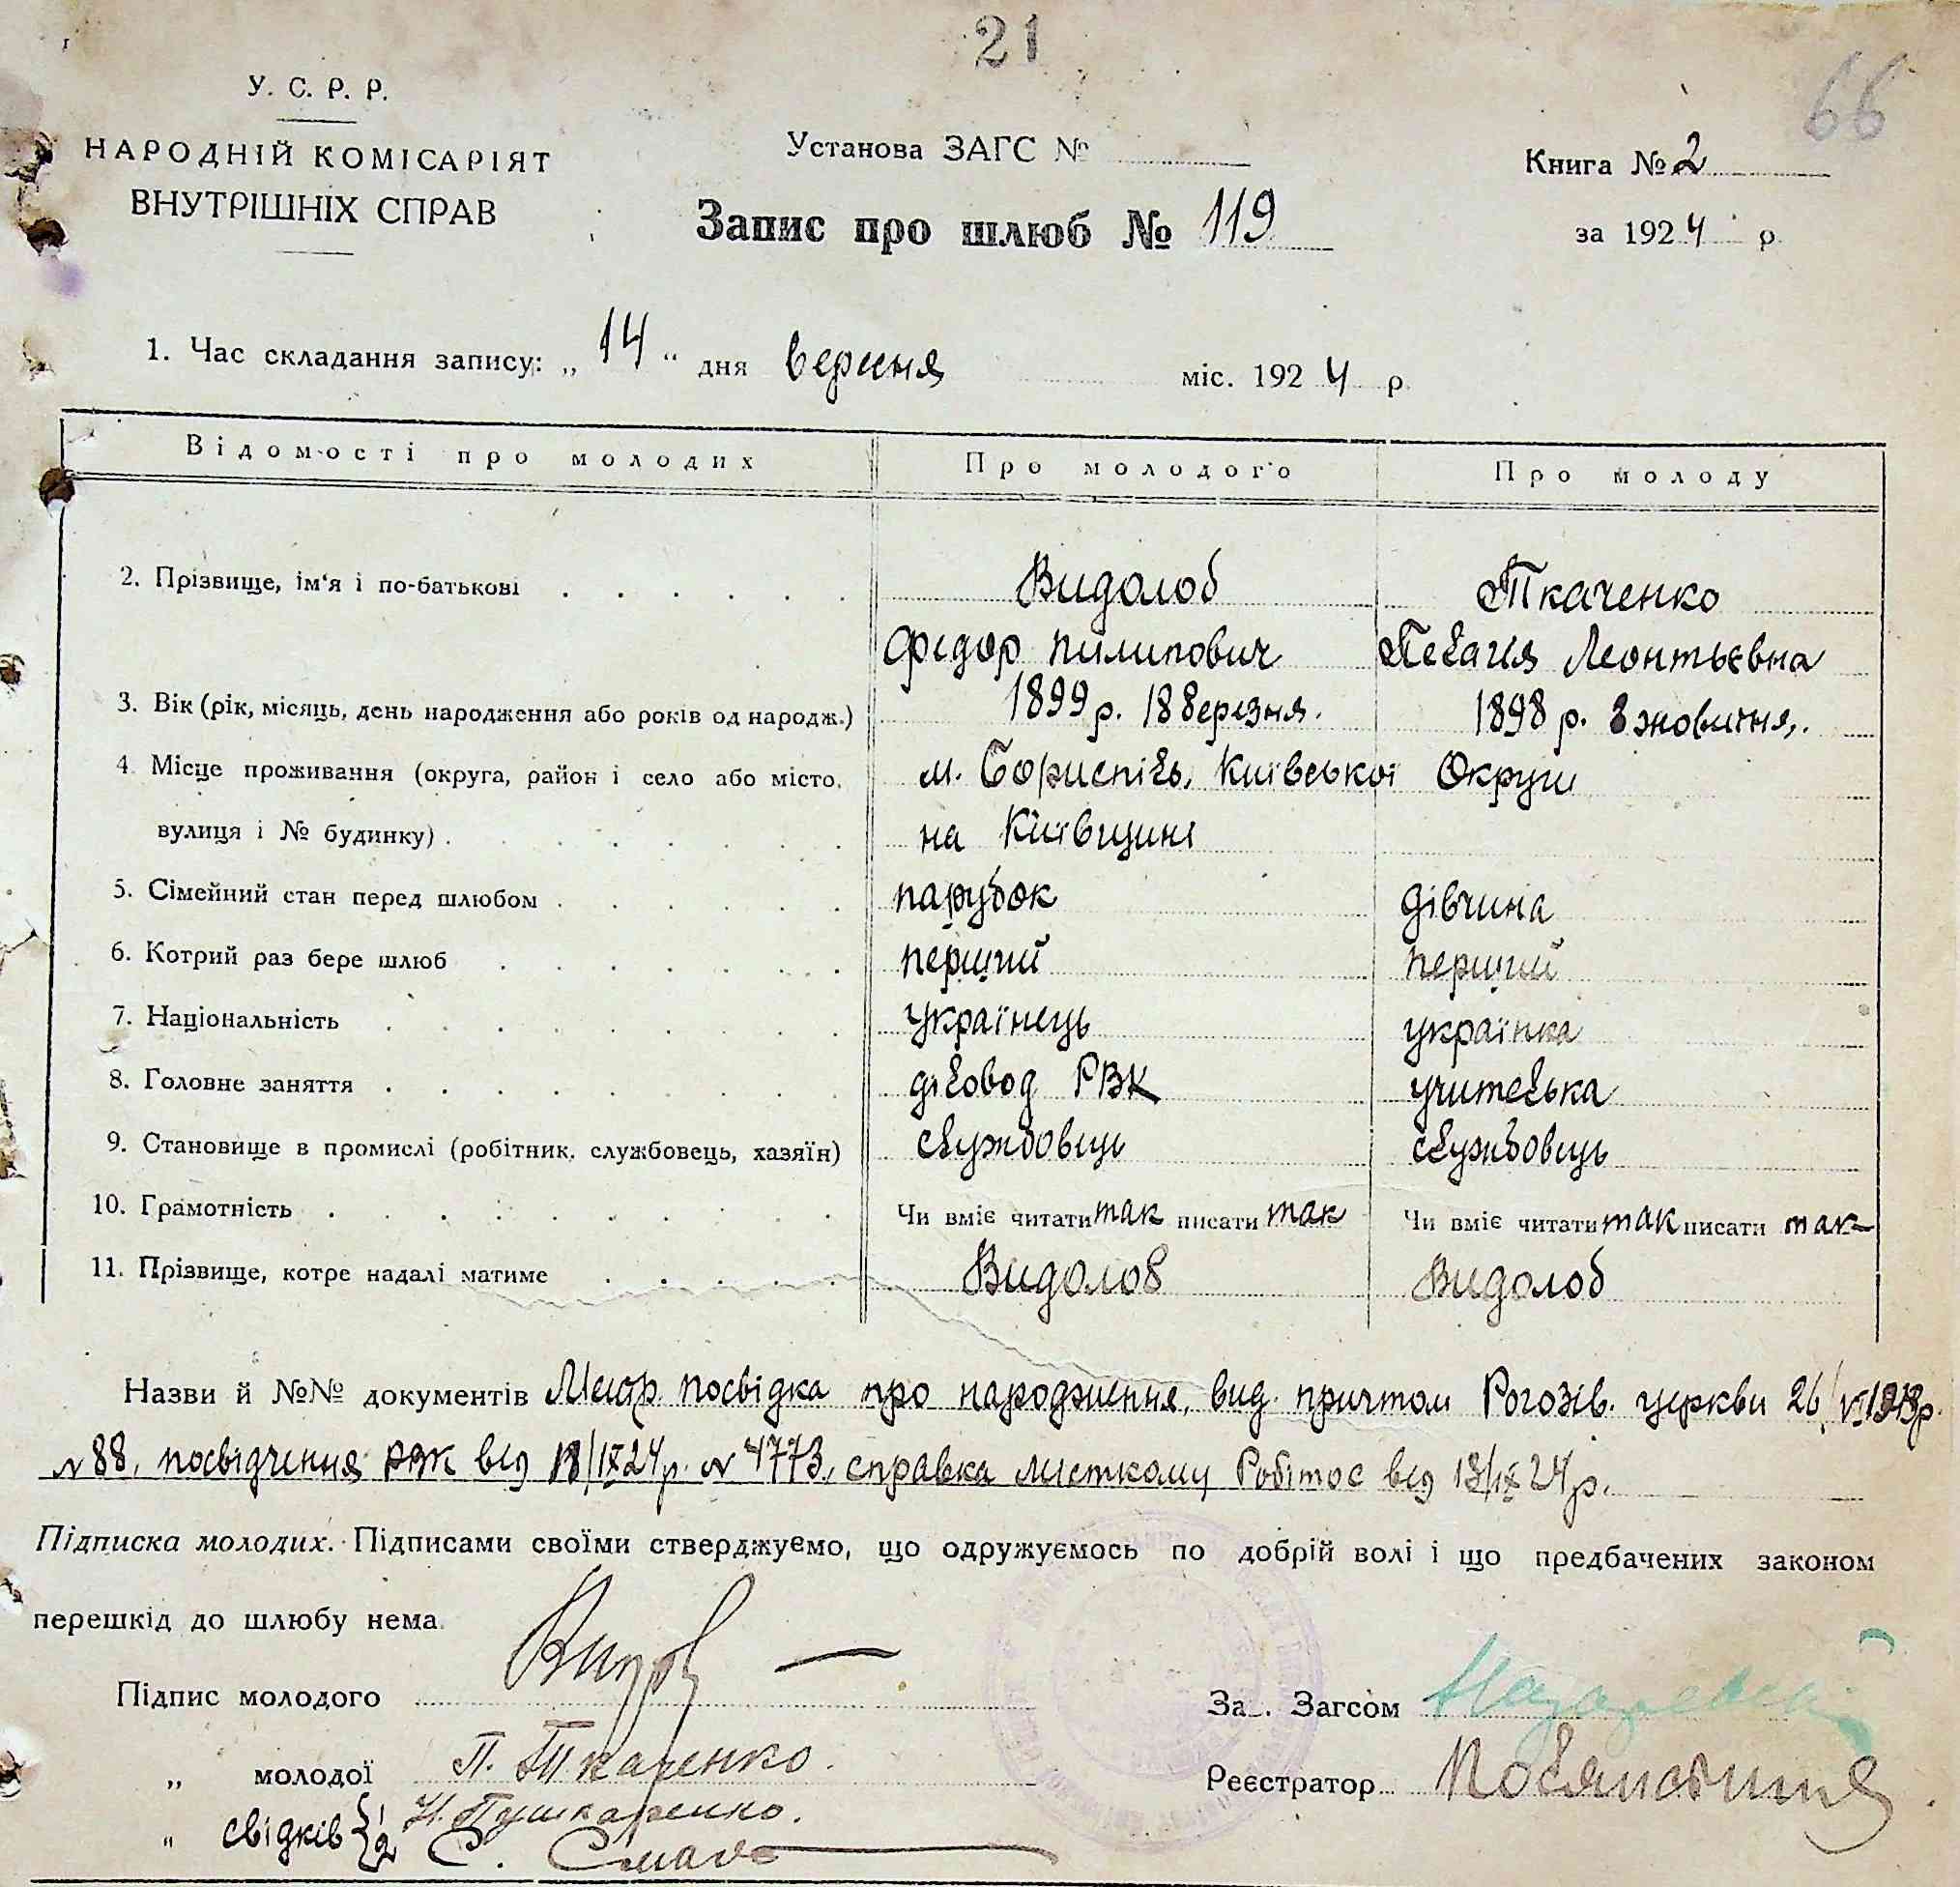 21
66
У. С. Р. Р.
НАРОДНІЙ КОМІСАРІЯТ
ВНУТРІШНІХ СПРАВ
Установа ЗАГС №
Запис про шлюб № 119
Книга № 2
за 1924 р.
1. Час складання запису: „ 14 “ дня вересня міс. 1924 р.
Відомості про молодих Про молодого Про молоду
2. Прізвище, ім'я і по-батькові Видолоб Ткаченко
Федор Пилипович Пелагія Леонтьєвна
3. Вік (рік, місяць, день народження або років од народж.) 1899 р. 18 березня. 1898 р. 8 жовтня.
4. Місце проживання (округа, район і село або місто, м. Бориспіль, Київської Округи
вулиця і № будинку) на Київщині
5. Сімейний стан перед шлюбом парубок дівчина
6. Котрий раз бере шлюб перший перший
7. Національність українець українка
8. Головне заняття діловод РВК учителька
9. Становище в промислі (робітник, службовець, хазяїн) службовець службовець
10. Грамотність Чи вміє читати так писати так Чи вміє читати так писати так
11. Прізвище, котре надалі матиме Видолоб Видолоб
Назви й №№ документів Метр. посвідка про народження, вид. причтом Рогозів. церкви 26/
№ 88, посвідчення РВК від 13/IX 24 р. № 4773, справка місткому Робітос від 13/IX 24 р.
Підписка молодих. Підписами своїми стверджуємо, що одружуємось по добрій волі і що предбачених законом
перешкід до шлюбу нема.
Підпис молодого
За . Загсом
„ молодої П. Ткаченко.
Реєстратор
„ свідків { 1 Н. Пушкаренко.
2 С.